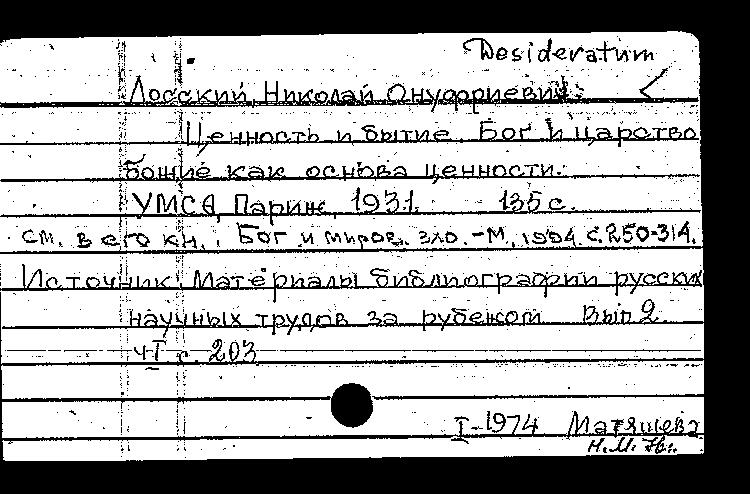 Desideratum
Лосский, Николай Онуфриевич.
Ценность и бытие. Бог и царство
божие как основа ценности.
УМСА, Париж, 1931. 135 с.
см. в его кн.: Бог и миров. зло. - М., 1994. с. 250-314.
Источник: Материалы библиографии русских
научных трудов за рубежом Вып 2.
ч I с. 203
I-1974 Матяшева